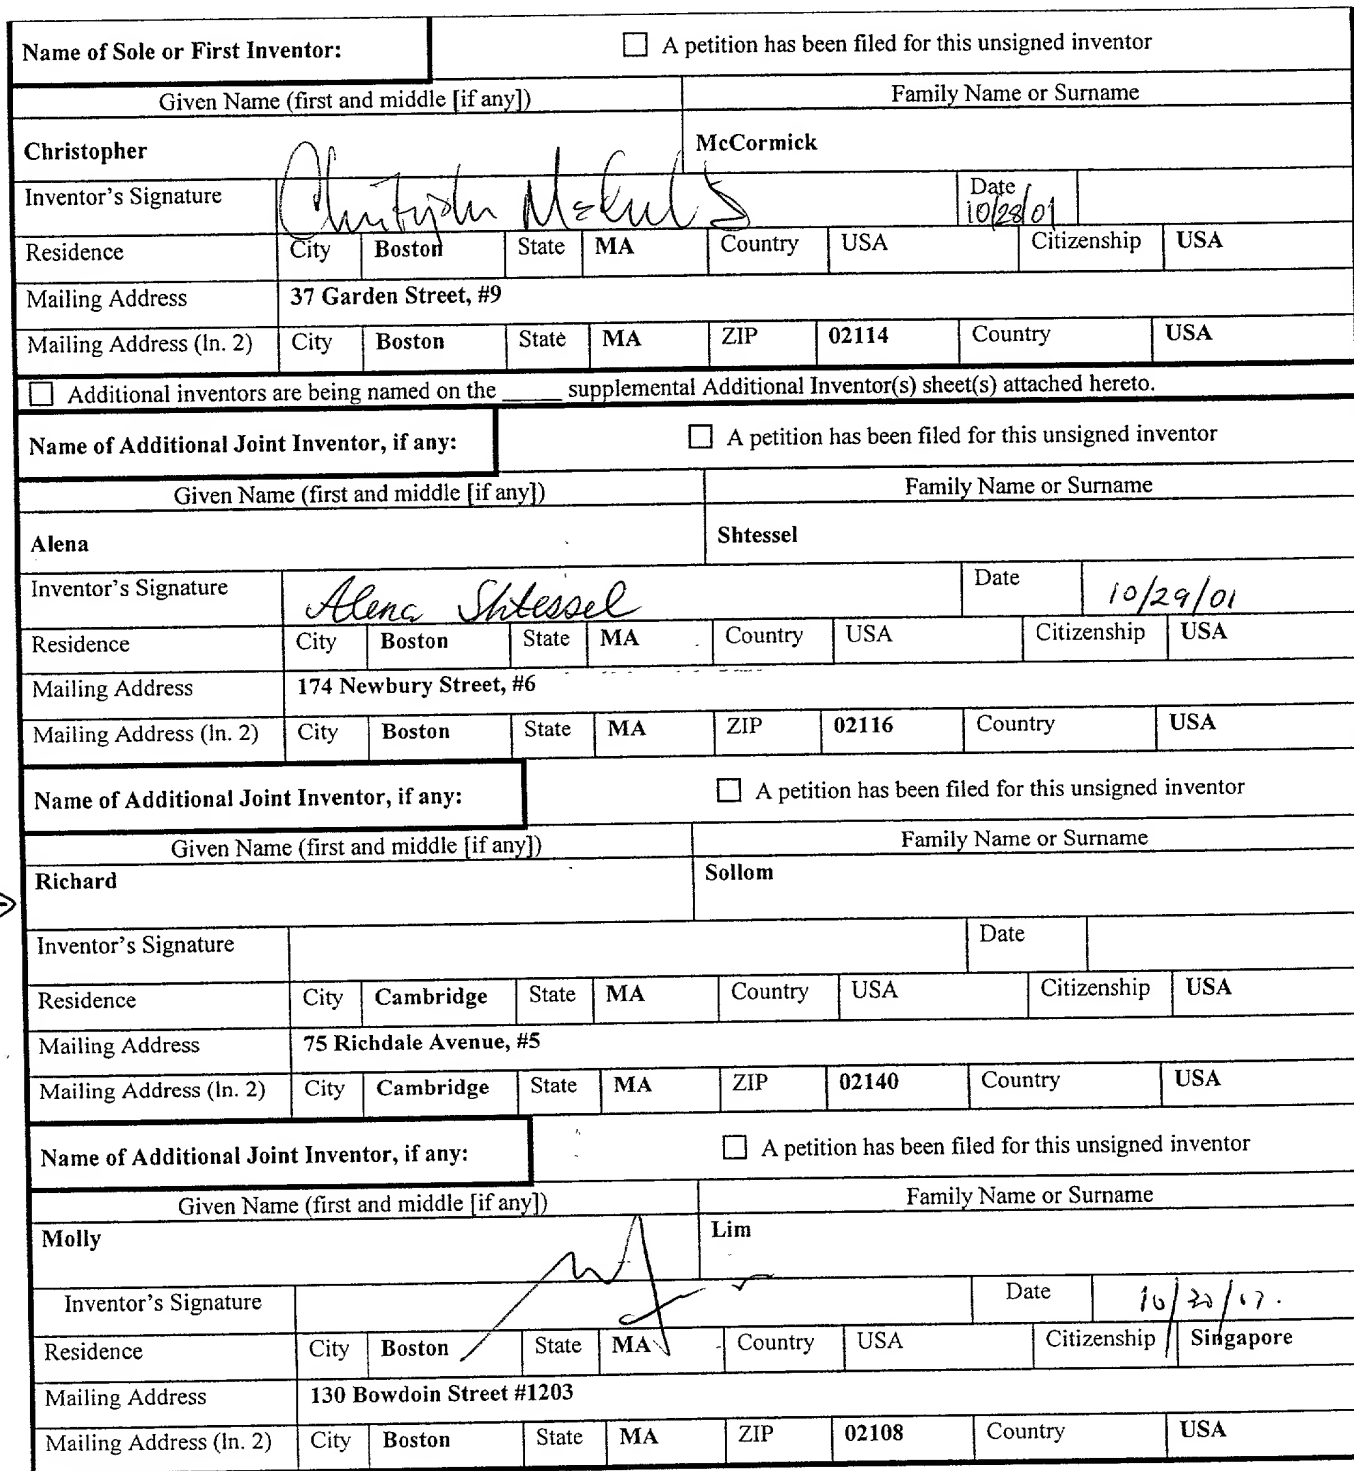 Name of Sole or First Inventor: ☐ A petition has been filed for this unsigned inventor
Given Name (first and middle [if any]) Family Name or Surname
Christopher McCormick
Inventor's Signature Date 10/28/01
Residence City Boston State MA Country USA Citizenship USA
Mailing Address 37 Garden Street, #9
Mailing Address (ln. 2) City Boston State MA ZIP 02114 Country USA
☐ Additional inventors are being named on the _____ supplemental Additional Inventor(s) sheet(s) attached hereto.
Name of Additional Joint Inventor, if any: ☐ A petition has been filed for this unsigned inventor
Given Name (first and middle [if any]) Family Name or Surname
Alena Shtessel
Inventor's Signature Alena Shtessel Date 10/29/01
Residence City Boston State MA Country USA Citizenship USA
Mailing Address 174 Newbury Street, #6
Mailing Address (ln. 2) City Boston State MA ZIP 02116 Country USA
Name of Additional Joint Inventor, if any: ☐ A petition has been filed for this unsigned inventor
Given Name (first and middle [if any]) Family Name or Surname
Richard Sollom
Inventor's Signature Date
Residence City Cambridge State MA Country USA Citizenship USA
Mailing Address 75 Richdale Avenue, #5
Mailing Address (ln. 2) City Cambridge State MA ZIP 02140 Country USA
Name of Additional Joint Inventor, if any: ☐ A petition has been filed for this unsigned inventor
Given Name (first and middle [if any]) Family Name or Surname
Molly Lim
Inventor's Signature Date
Residence City Boston State MA Country USA Citizenship Singapore
Mailing Address 130 Bowdoin Street #1203
Mailing Address (ln. 2) City Boston State MA ZIP 02108 Country USA